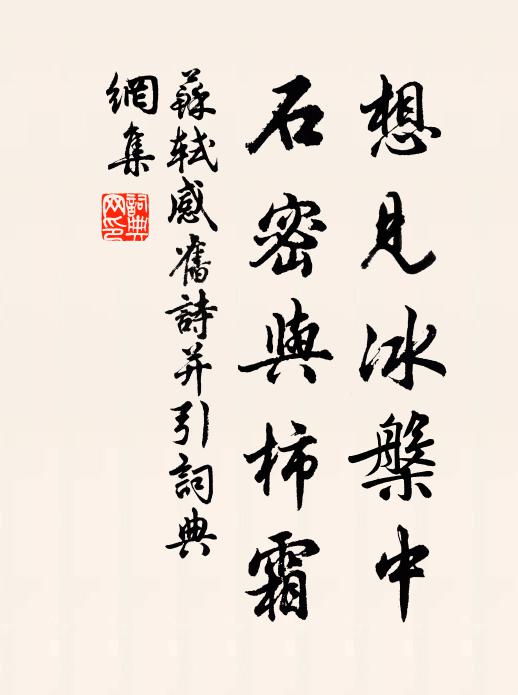 想見冰槃中
石密與柿霜
蘇軾感舊詩并引詞典
網集
詞典
网印